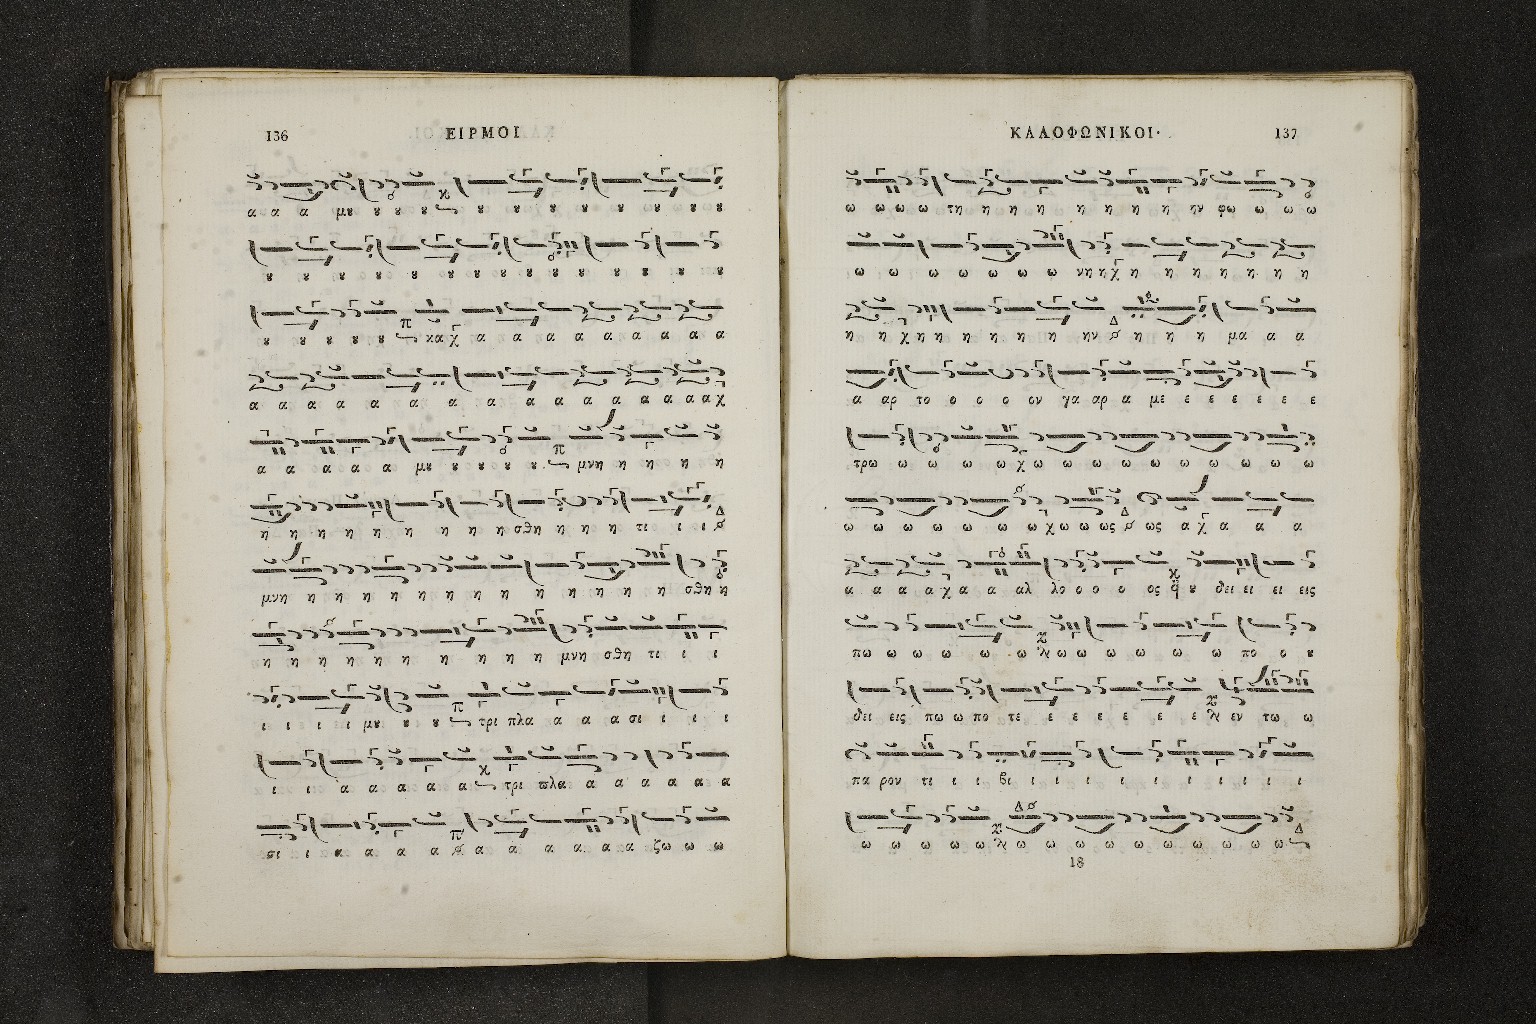 136
ΕΙΡΜΟΙ
α α α μȣ ȣ ȣ ȣ ȣ ȣ ȣ ȣ ȣ ȣ ȣ ȣ
ȣ ȣ ȣ ȣ ȣ ȣ ȣ ȣ ȣ ȣ ȣ ȣ ȣ ȣ
ȣ ȣ ȣ ȣ ȣ κα χ α α α α α α α α α
α α α α α α α α α α α α α α α α χ
α α α α α μȣ ȣ ȣ ȣ ȣ μνη η η η η
η η η η η η η η σθη η η η τι ι ι
μνη η η η η η η η η η η η η η σθη η
η η η η η η η η η μνη σθη τι ι ι
ι ι ι ι μȣ ȣ ȣ τρι πλα α α α σι ι ι ι
ι ι α α α α α τρι πλα α α α α α α
σι ι α α α α α α α α α ζω ω ω
ΚΑΛΟΦΩΝΙΚΟΙ·
137
ω ω ω ω τη η η η η η η η ην φω ω ω ω
ω ω ω ω ω ω ω νη η χ η η η η η η η
η η χ η η η η η η ην η η η μα α α
α αρ το ο ο ο ον γα αρ α με ε ε ε ε ε ε
τρω ω ω ω ω χ ω ω ω ω ω ω ω ω ω ω
ω ω ω ω ω ω ω χ ω ω ως ως α χ α α α
α α α α χ α α αλ λο ο ο ο ος ȣ δει ει ει εις
πω ω ω ω ω ω ω ω ω ω ω ω πο ο ȣ
δει εις πω ω πο τε ε ε ε ε ε ε εν τω ω
πα ρον τι ι ι βι ι ι ι ι ι ι ι ι ι ι
ω ω ω ω ω ω ω ω ω ω ω ω ω ω ω
18